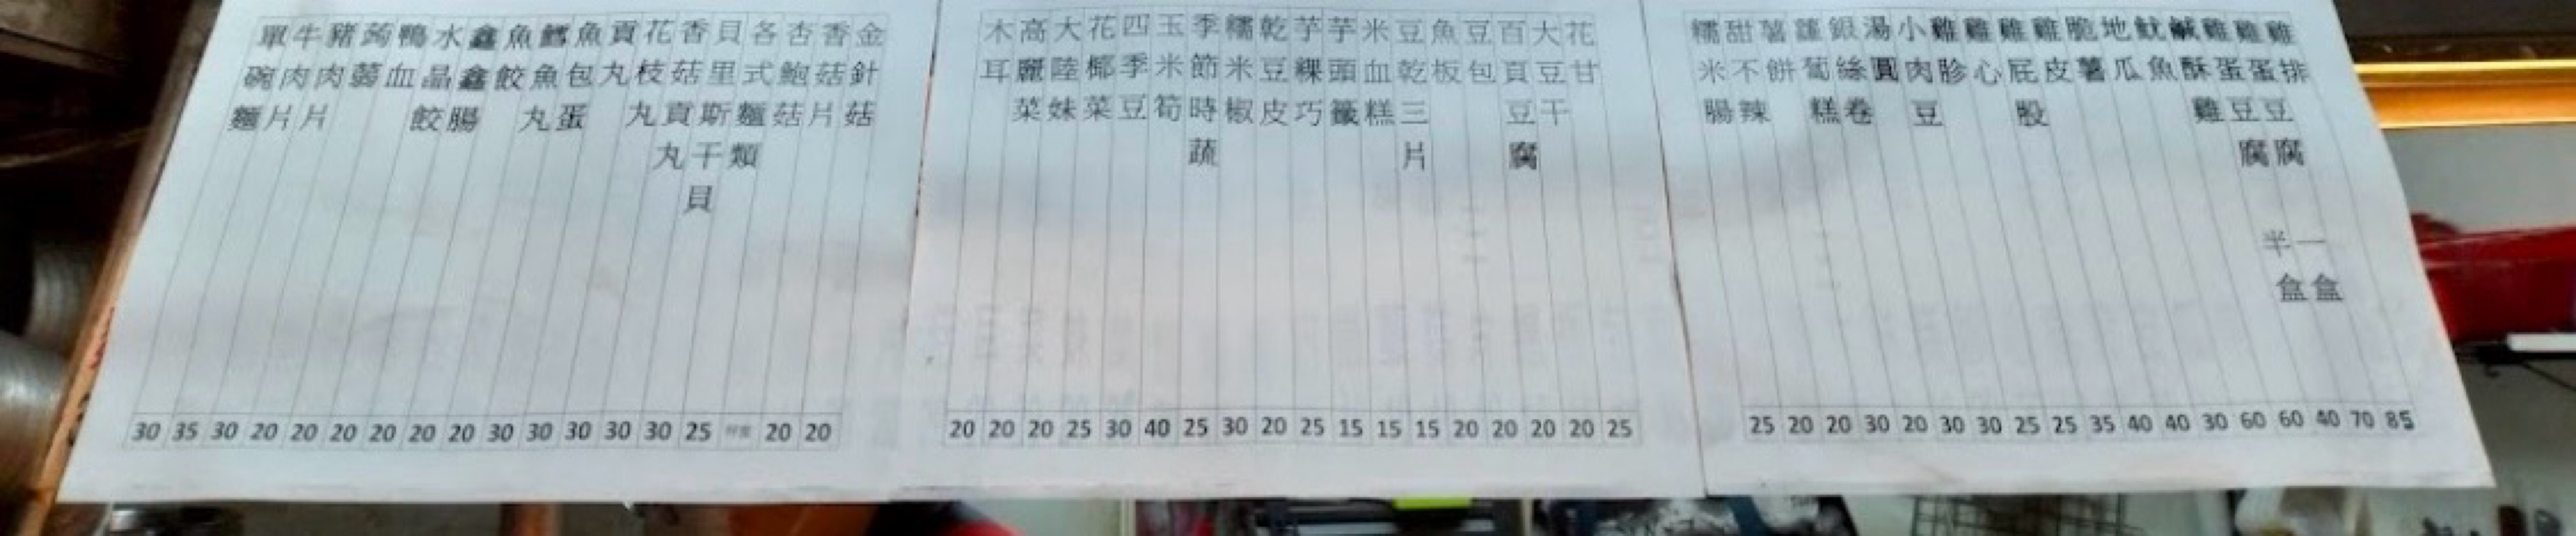 雞排 85
雞蛋豆腐 一盒 70
雞蛋豆腐 半盒 40
鹹酥雞 60
魷魚 60
地瓜 30
脆薯 40
雞皮 40
雞屁股 35
雞心 25
雞胗 25
小肉豆 30
湯圓 30
銀絲卷 20
蘿蔔糕 30
薯餅 20
甜不辣 20
糯米腸 25
花甘 25
大豆干 20
百頁豆腐 20
豆包 20
魚板 20
豆乾三片 15
米血糕 15
芋頭籤 15
芋粿巧 25
乾豆皮 20
糯米椒 30
季節時蔬 25
玉米筍 40
四季豆 30
花椰菜 25
大陸妹 20
高麗菜 20
木耳 20
金針菇 20
香菇片 20
杏鮑菇
各式麵類 25
貝里斯干貝 30
香菇貢丸 30
花枝丸 30
貢丸 30
魚包蛋 30
鱈魚丸 20
魚餃 20
鑫鑫腸 20
水晶餃 20
鴨血 20
蒟蒻 20
豬肉片 30
牛肉片 35
單碗麵 30